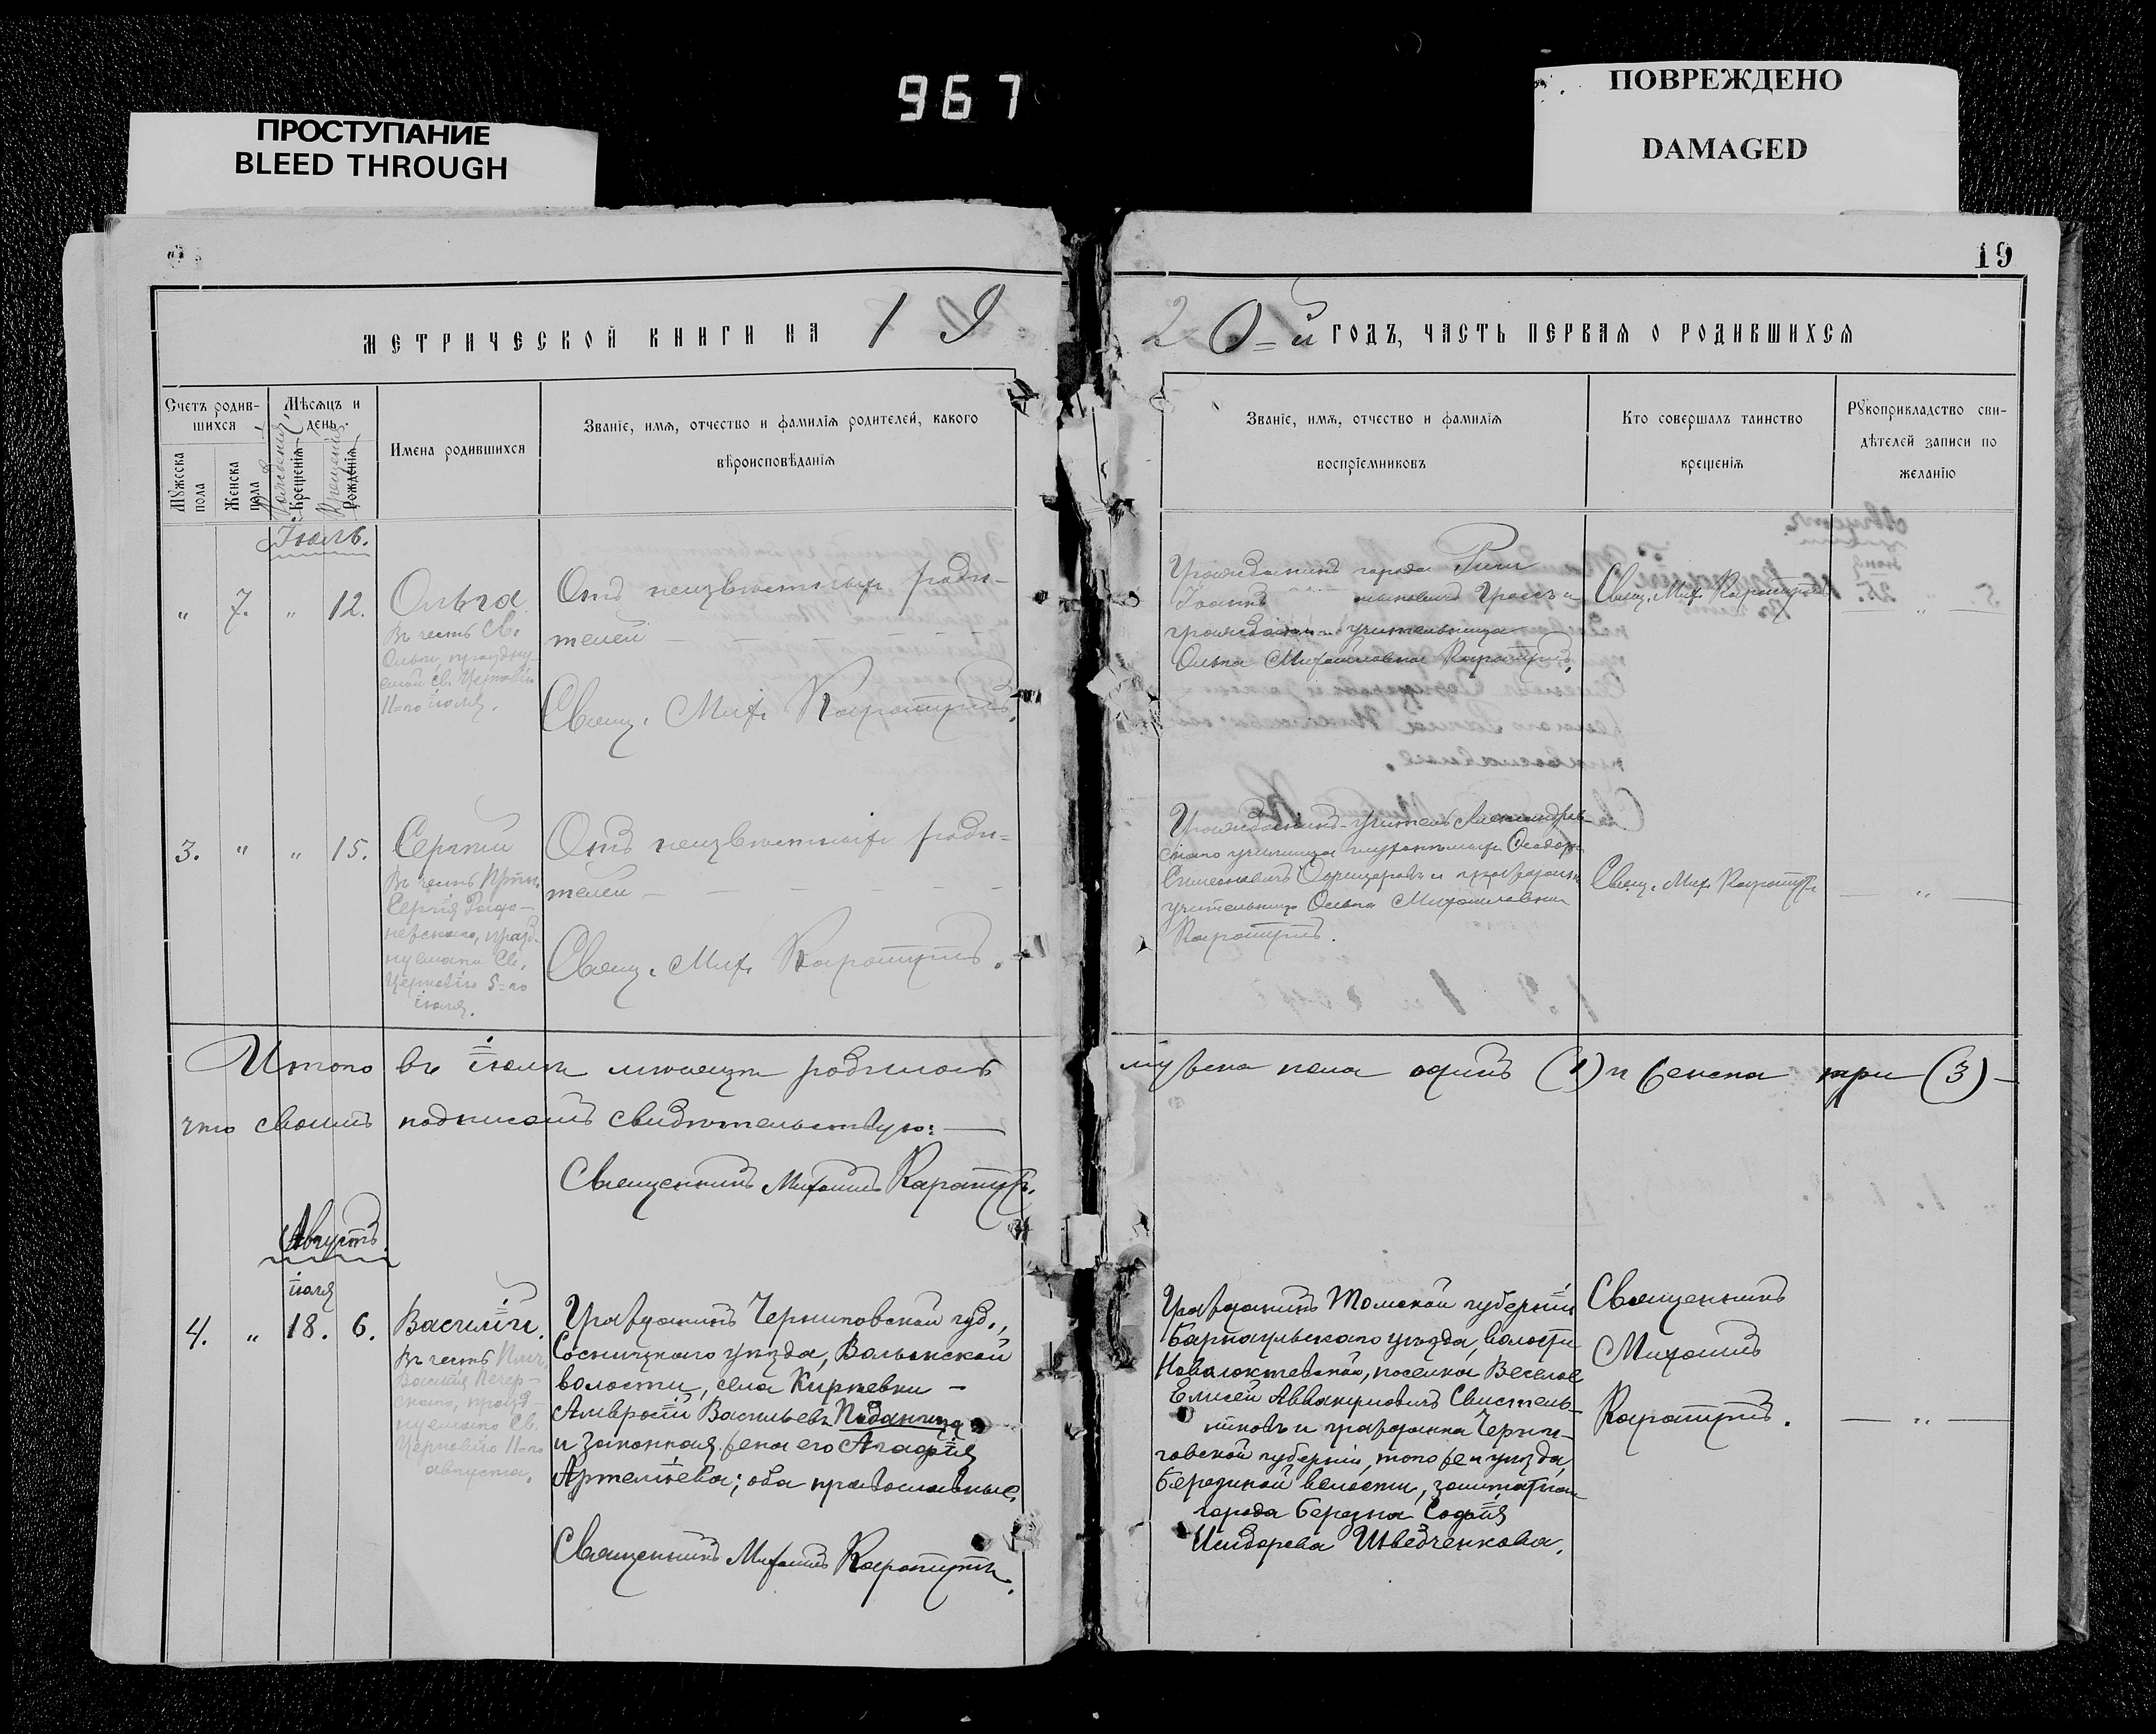 967
ПРОСТУПАНИЕ
BLEED THROUGH
ПОВРЕЖДЕНО
DAMAGED
19
МЕТРИЧЕСКОЙ КНИГИ НА 19
20=й ГОДЪ, ЧАСТЬ ПЕРВАЯ О РОДИВШИХСЯ
Счетъ родив-
шихся
Мужеска
пола
Женска
пола
Мѣсяцъ и
день.
Рожденія
Крещенія
Крещенія
Рожденія
Имена родившихся
Званіе, имя, отчество и фамилія родителей, какого
вѣроисповѣданія
Званіе, имя, отчество и фамилія
воспріемниковъ
Кто совершалъ таинство
крещенія
Рукоприкладство сви-
дѣтелей записи по
желанію
Іюль.
" 7. " 12.
Ольга
Въ честь Св.
Ольги, праздну-
емой св. Церковію
11=го іюля.
Отъ неизвѣстныхъ роди-
телей
Свящ. Мих. Каратунъ.
Гражданинъ города Риги
Іоаннъ Гроссъ и
гражданка учительница
Ольга Михайловна
Свящ. Мих.
3. " " 15.
Сергій
Въ честь Прпп.
Сергія Радо-
нежскаго, празд-
нуемаго Св.
Церковію 5=го
іюля.
Отъ неизвѣстныхъ роди=
телей
Свящ. Мих.
Гражданинъ-учитель Александров-
скаго училища Ѳеодоръ
Симеоновичъ и гражданка
учительница Ольга Михайловна
Свящ. Мих.
Итого въ іюлѣ мѣсяцѣ родилось
мужска пола одинъ (1) и женска три (3) —
что своимъ подписомъ свидѣтельствую:
Священникъ Михаилъ
Августъ
іюля
4. " 18. 6.
Василій.
Въ честь
Василія Печер-
скаго, празд-
нуемаго Св.
Церковію 11=го
августа.
Гражданинъ Черниговской губ.,
Сосницкаго уѣзда, Волынской
волости, села Киріевки —
Амвросій Васильевъ
и законная жена его Агафія
Артеміева; оба православные.
Священникъ Михаилъ
Гражданинъ Томской губерніи
Барнаульскаго уѣзда, волости
поселка Веселое
Елисей Аввакумовичъ Свистель-
никовъ и гражданка Черни-
говской губерніи, того же уѣзда
Березнской волости, заштатнаго
города Березна Софія
Исидорова Шведченкова.
Священникъ
Михаилъ